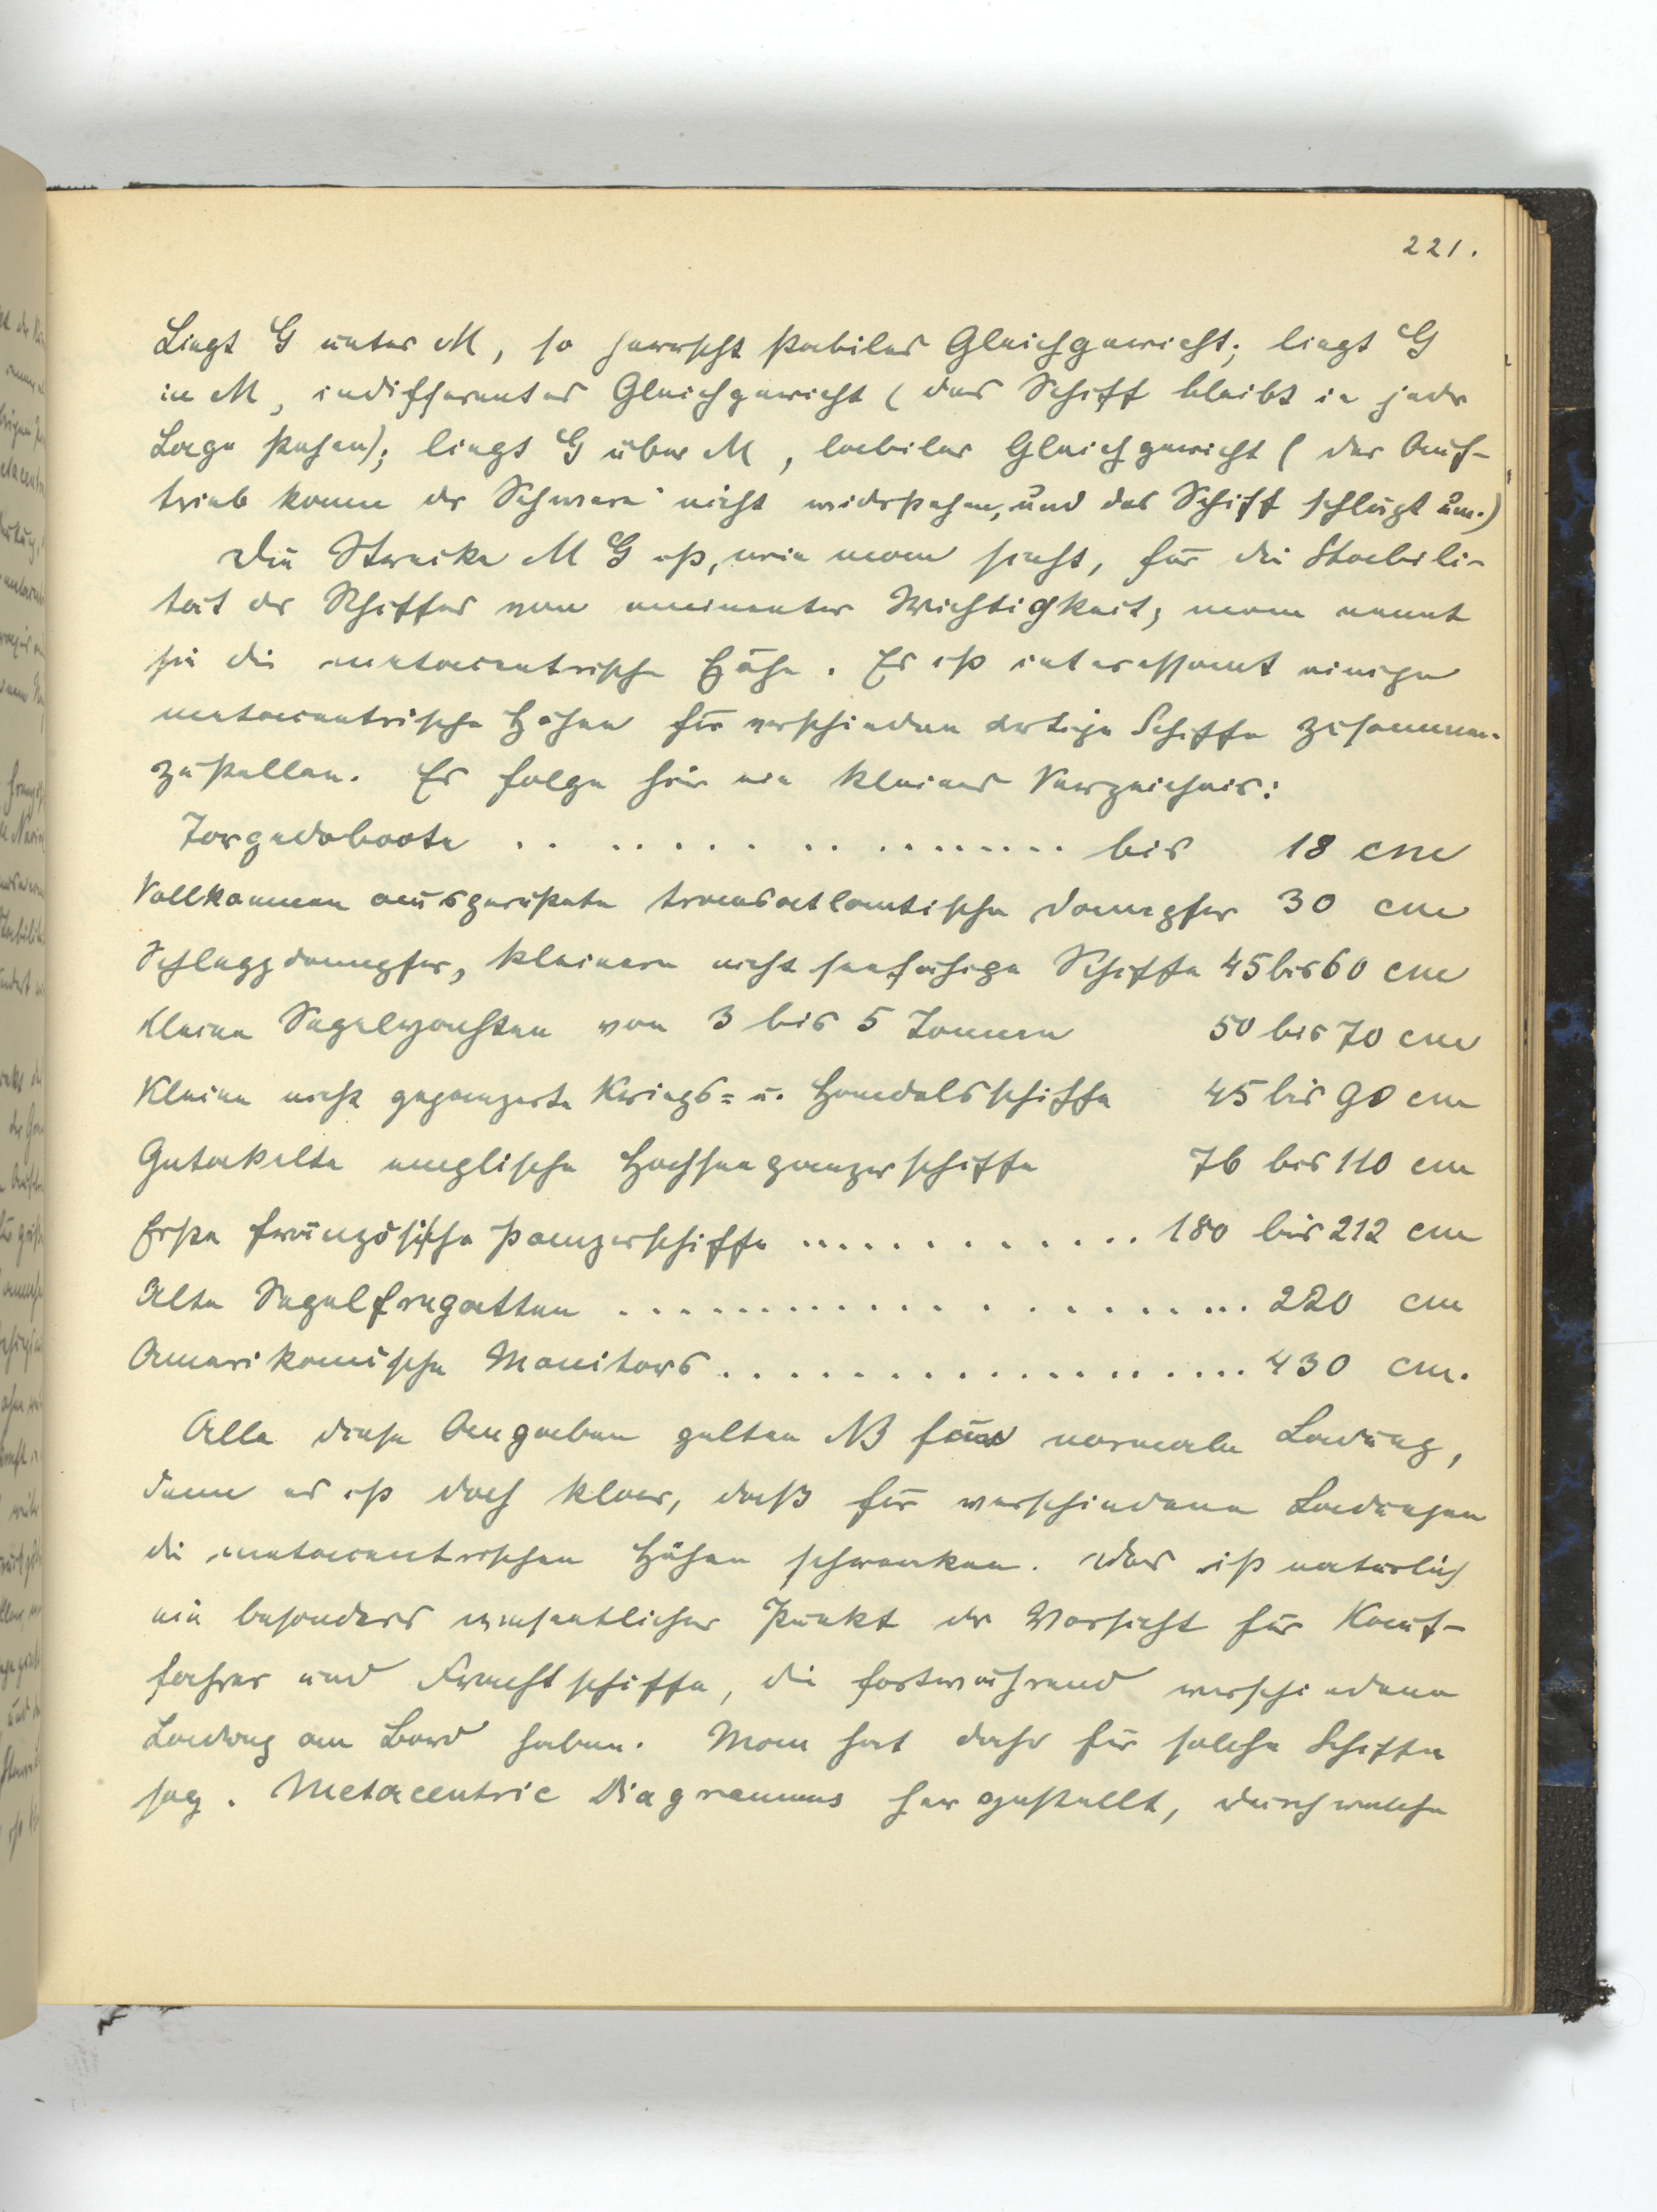 221.
Liegt G unter M, so herrscht stabiles Gleichgewicht; liegt G
in M, indifferentes Gleichgewicht (das Schiff bleibt in jeder
Lage stehen); liegt G über M, labiles Gleichgewicht (der Auf-
trieb kann der Schwere nicht widerstehen, und das Schiff schlägt um.)
Die Strecke M G ist, wie man sieht, für die Stabili-
tät der Schiffes von eminenter Wichtigkeit; man nennt
sie die metacentrische Höhe. Es ist interessant einige
metacentrische Höhen für verschieden artige Schiffe zusammen-
zustellen. Es folge hier ein kleines Verzeichnis:
Torpedoboote . . . . . . . . . . . . . . . . . bis 18 cm
Vollkommen ausgerüstete transatlantische Dampfer 30 cm
Schleppdampfer, kleinere nicht seefähige Schiffe 45 bis 60 cm
Kleine Segelyachten von 3 bis 5 Tonnen 50 bis 70 cm
Kleine nicht gepanzerte Kriegs= u. Handelsschiffe 45 bis 90 cm
Getakelte englische Hochseepanzerschiffe 76 bis 110 cm
Erste französische Panzerschiffe . . . . . . . . . . . . . 180 bis 212 cm
Alte Segelfregatten . . . . . . . . . . . . . . . . . . . . . . 220 cm
Amerikanische Monitors . . . . . . . . . . . . . . . . . . . 430 cm.
Alle diese Angaben gelten NB für normale Ladung,
denn es ist doch klar, daß für verschiedene Ladungen
die metacentrischen Höhen schwanken. Das ist natürlich
ein besonders wesentlicher Punkt der Vorsicht für Kauf-
fahrer und Frachtschiffe, die fortwährend verschiedene
Ladung an Bord haben. Man hat daher für solche Schiffe
sog. Metacentric Diagramms hergestellt, durch welche